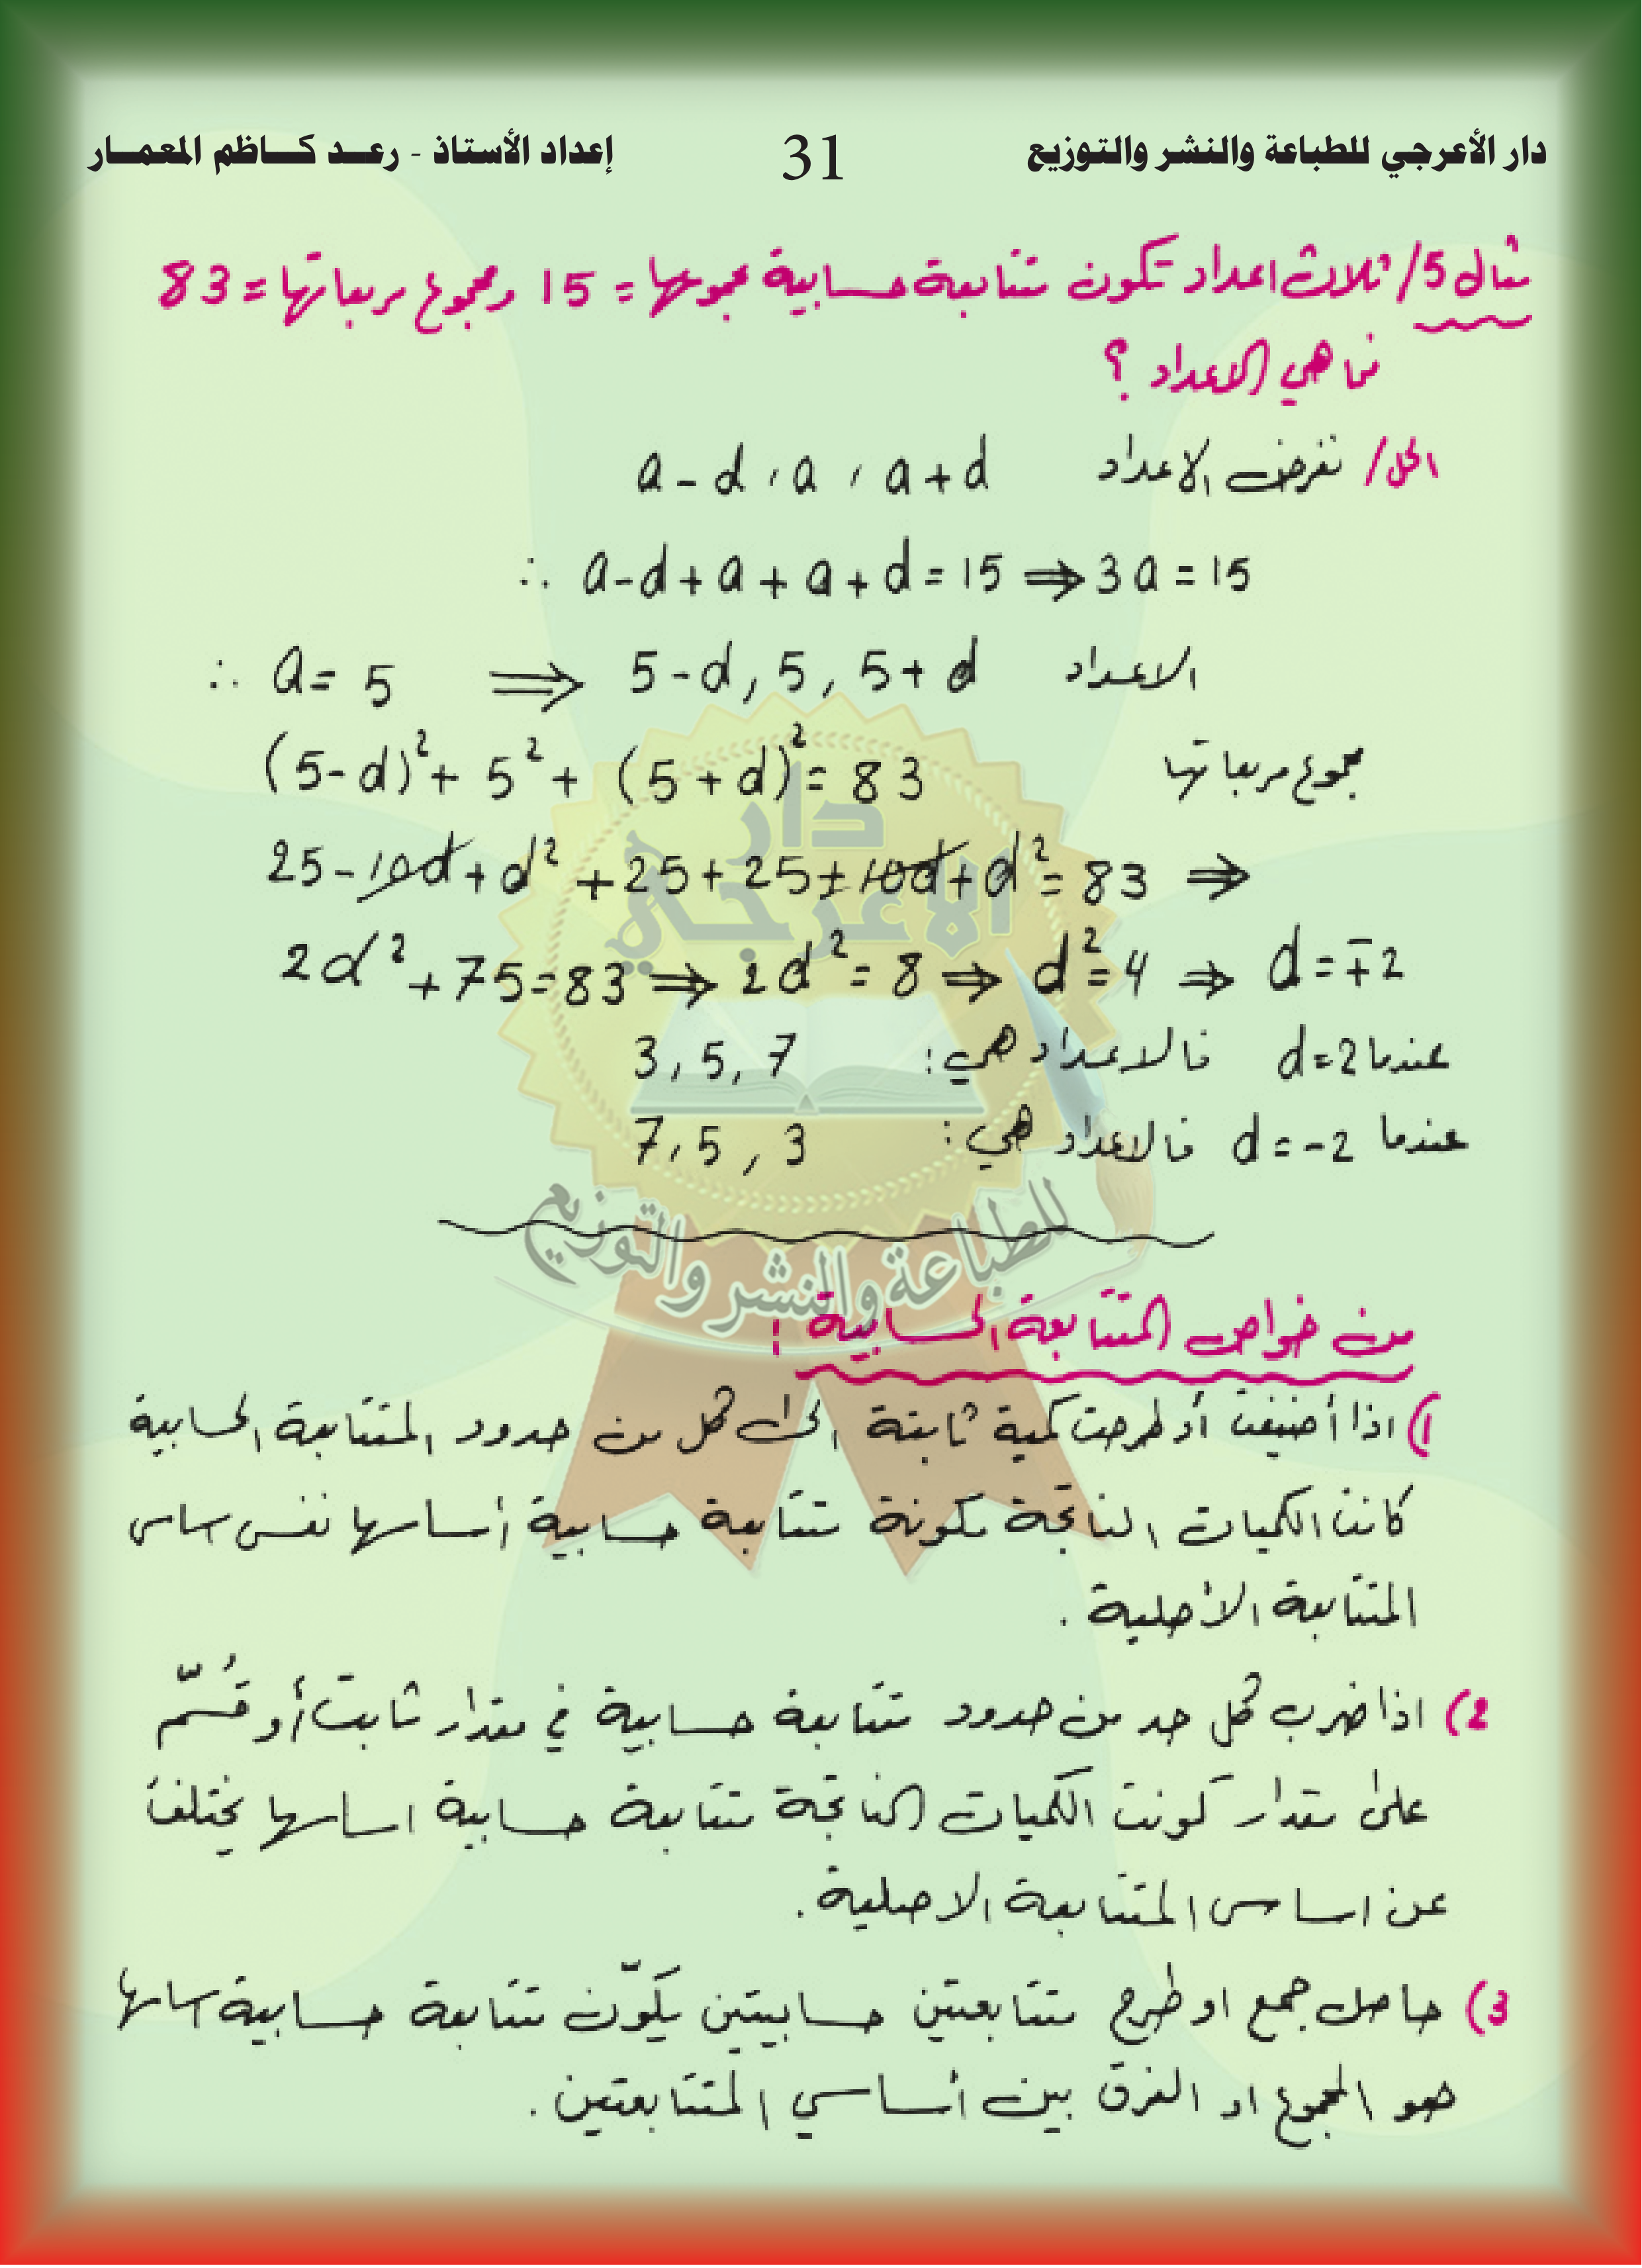 دار الأعرجي للطباعة والنشر والتوزيع 31 إعداد الأستاذ - رعـد كـاظم المعمـار
مثال 5/ ثلاث اعداد تكون متتابعة حسابية مجموعها = 15 ومجموع مربعاتها = 83
فما هي الاعداد ؟
الحل/ نفرض الاعداد a - d , a , a + d
∴ a - d + a + a + d = 15 ⇒ 3a = 15
∴ a = 5 ⇒ 5 - d , 5 , 5 + d الاعداد
مجموع مربعاتها (5 - d)² + 5² + (5 + d)² = 83
25 - 10d + d² + 25 + 25 + 10d + d² = 83 ⇒
2d² + 75 = 83 ⇒ 2d² = 8 ⇒ d² = 4 ⇒ d = ∓2
عندما d = 2 فالاعداد هي : 3 , 5 , 7
عندما d = -2 فالاعداد هي : 7 , 5 , 3
دار
الاعرجي
للطباعة والنشر والتوزيع
من خواص المتتابعة الحسابية :
1) اذا أضيفت أو طرحت كمية ثابتة الى كل من حدود المتتابعة الحسابية
كانت الكميات الناتجة مكونة متتابعة حسابية أساسها نفس اساس
المتتابعة الأصلية .
2) اذا ضرب كل حد من حدود متتابعة حسابية في مقدار ثابت أو قُسّم
على مقدار كونت الكميات الناتجة متتابعة حسابية اساسها يختلف
عن اساس المتتابعة الاصلية .
3) حاصل جمع او طرح متتابعتين حسابيتين يكوّن متتابعة حسابية اساسها
هو المجموع او الفرق بين أساسي المتتابعتين .